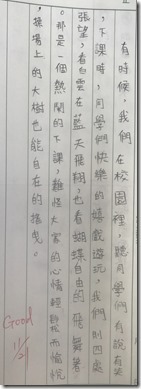 有時候，我們在校園裡，聽同學們有說有笑
，下課時，同學們快樂的嬉戲遊玩，我們則四處
張望，看白雲在藍天飛翔，也看蝴蝶自由的飛舞著
。那是一個熱鬧的下課，難怪大家的心情輕鬆而愉悅
，操場上的大樹也能自在的搖曳。
Good
11/2